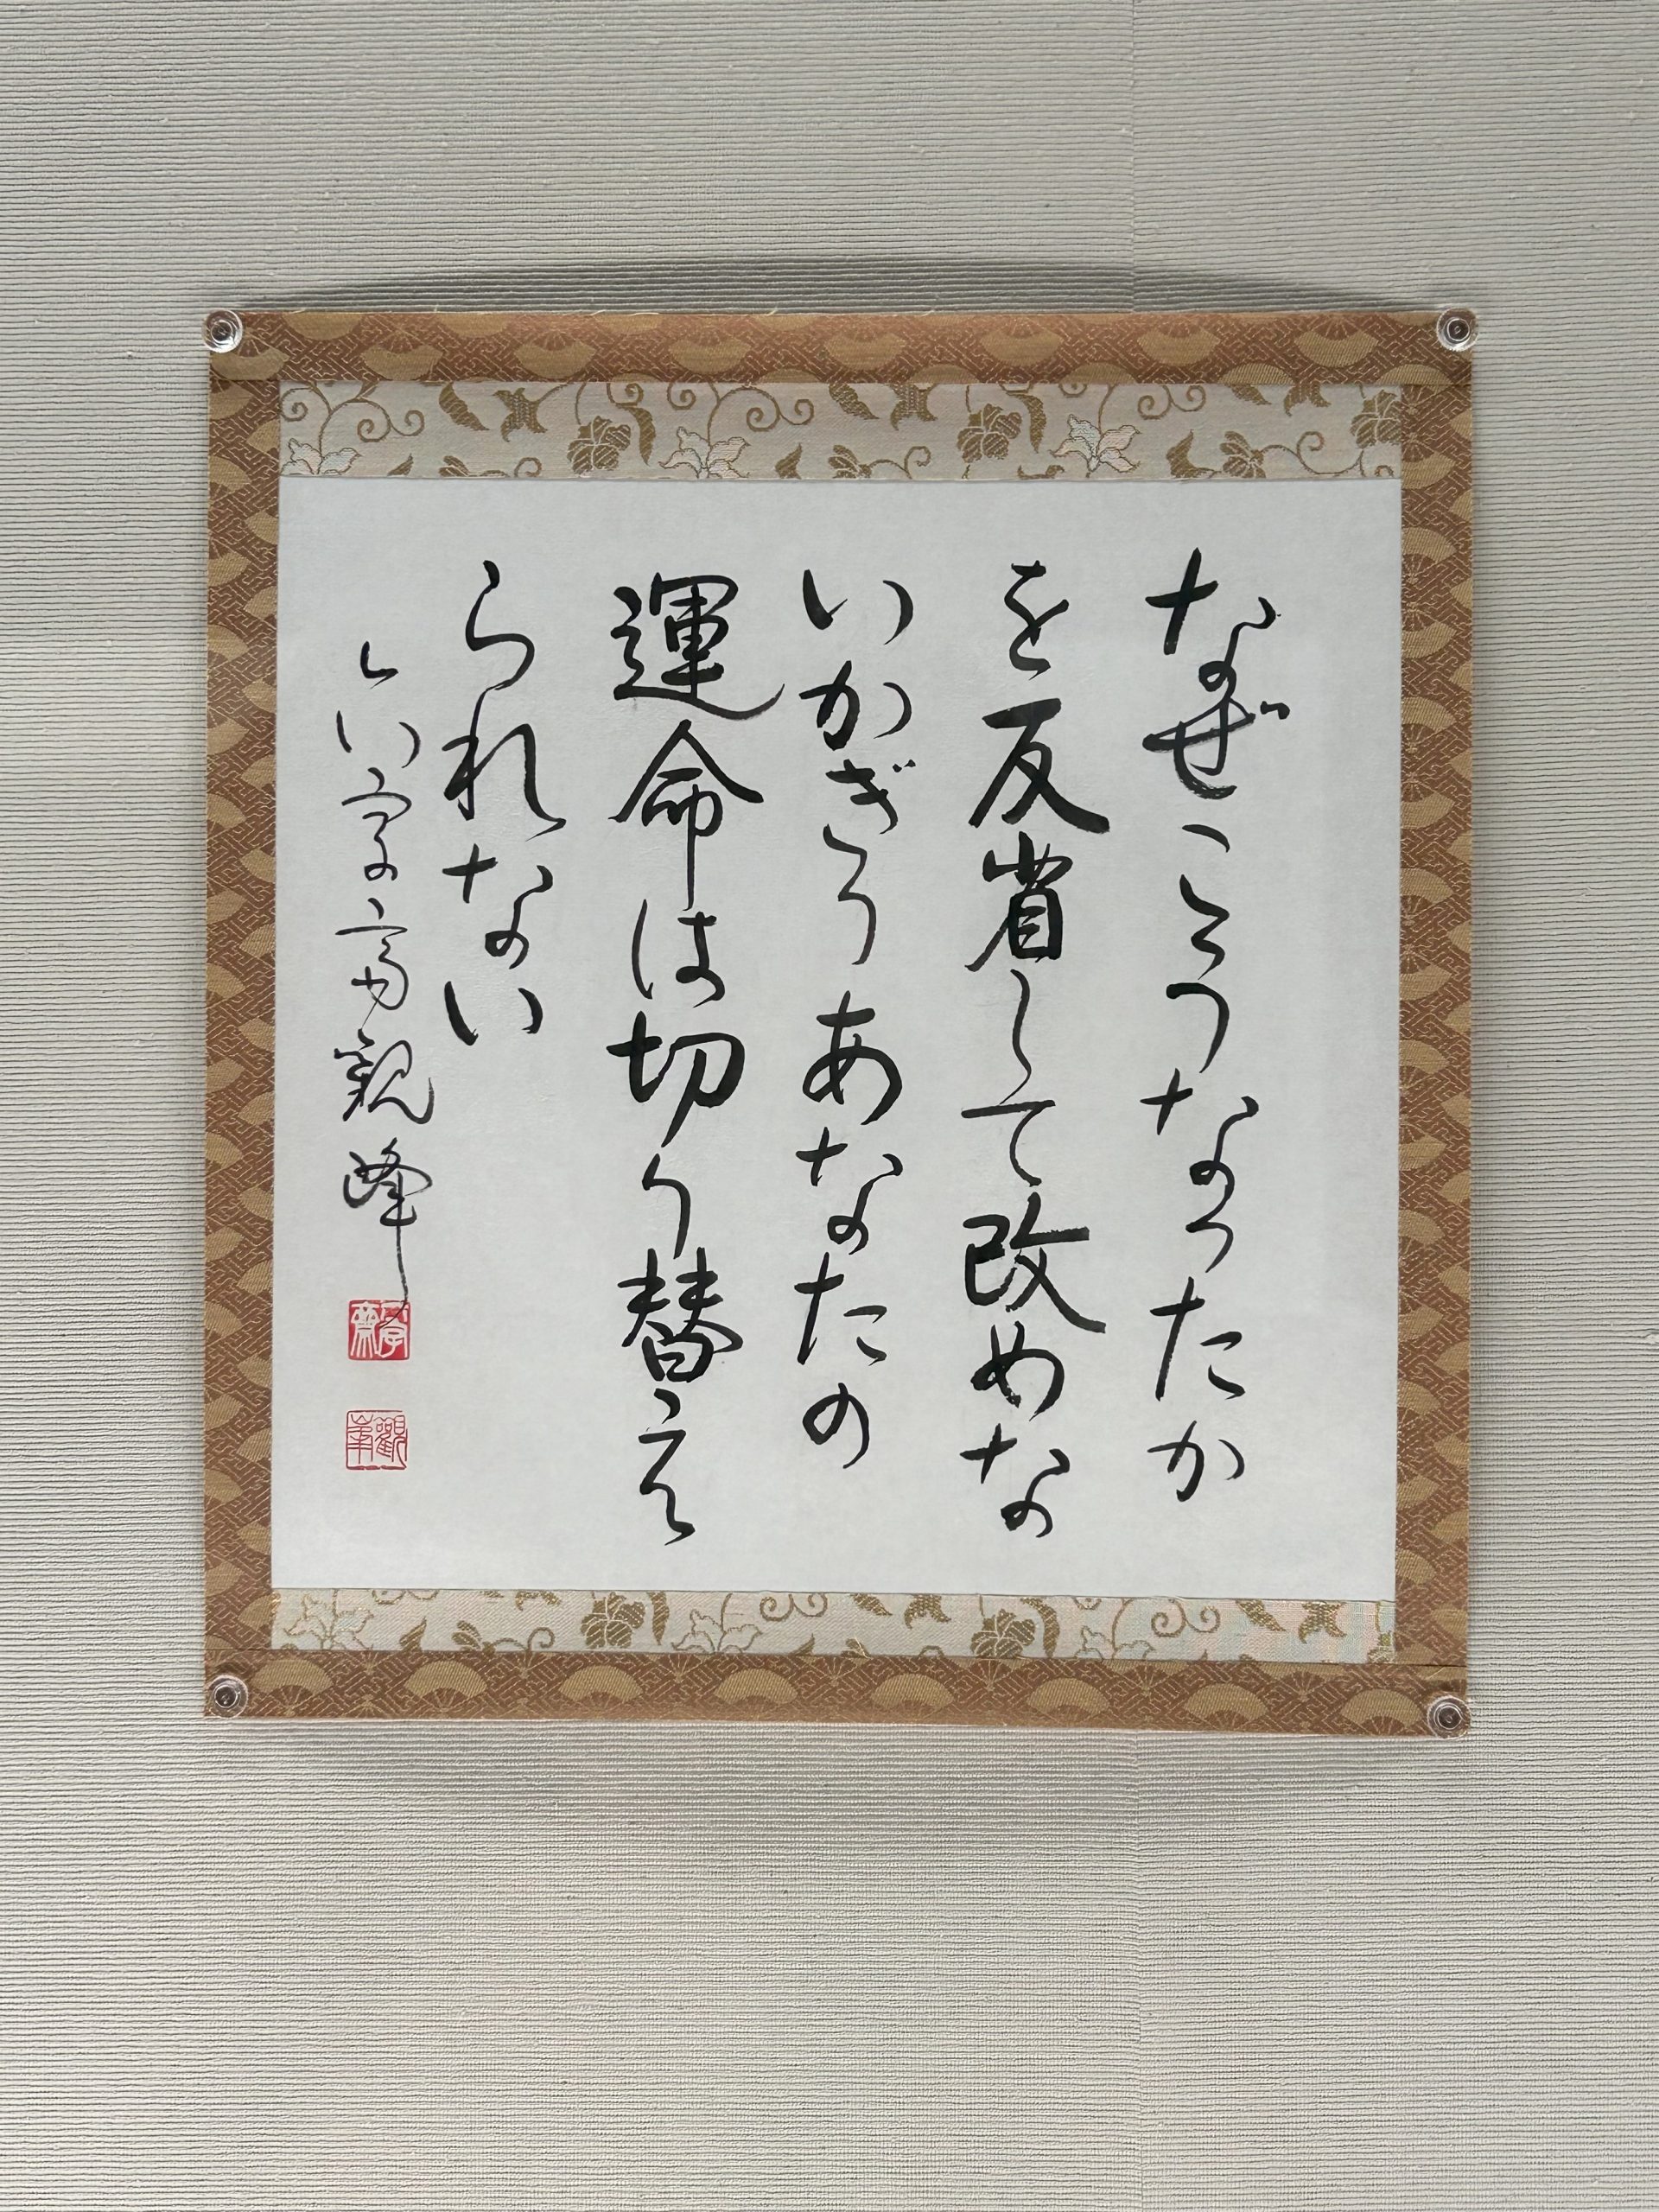 なぜこうなったか
を反省して改めな
いかぎりあなたの
運命は切り替え
られない
観峰